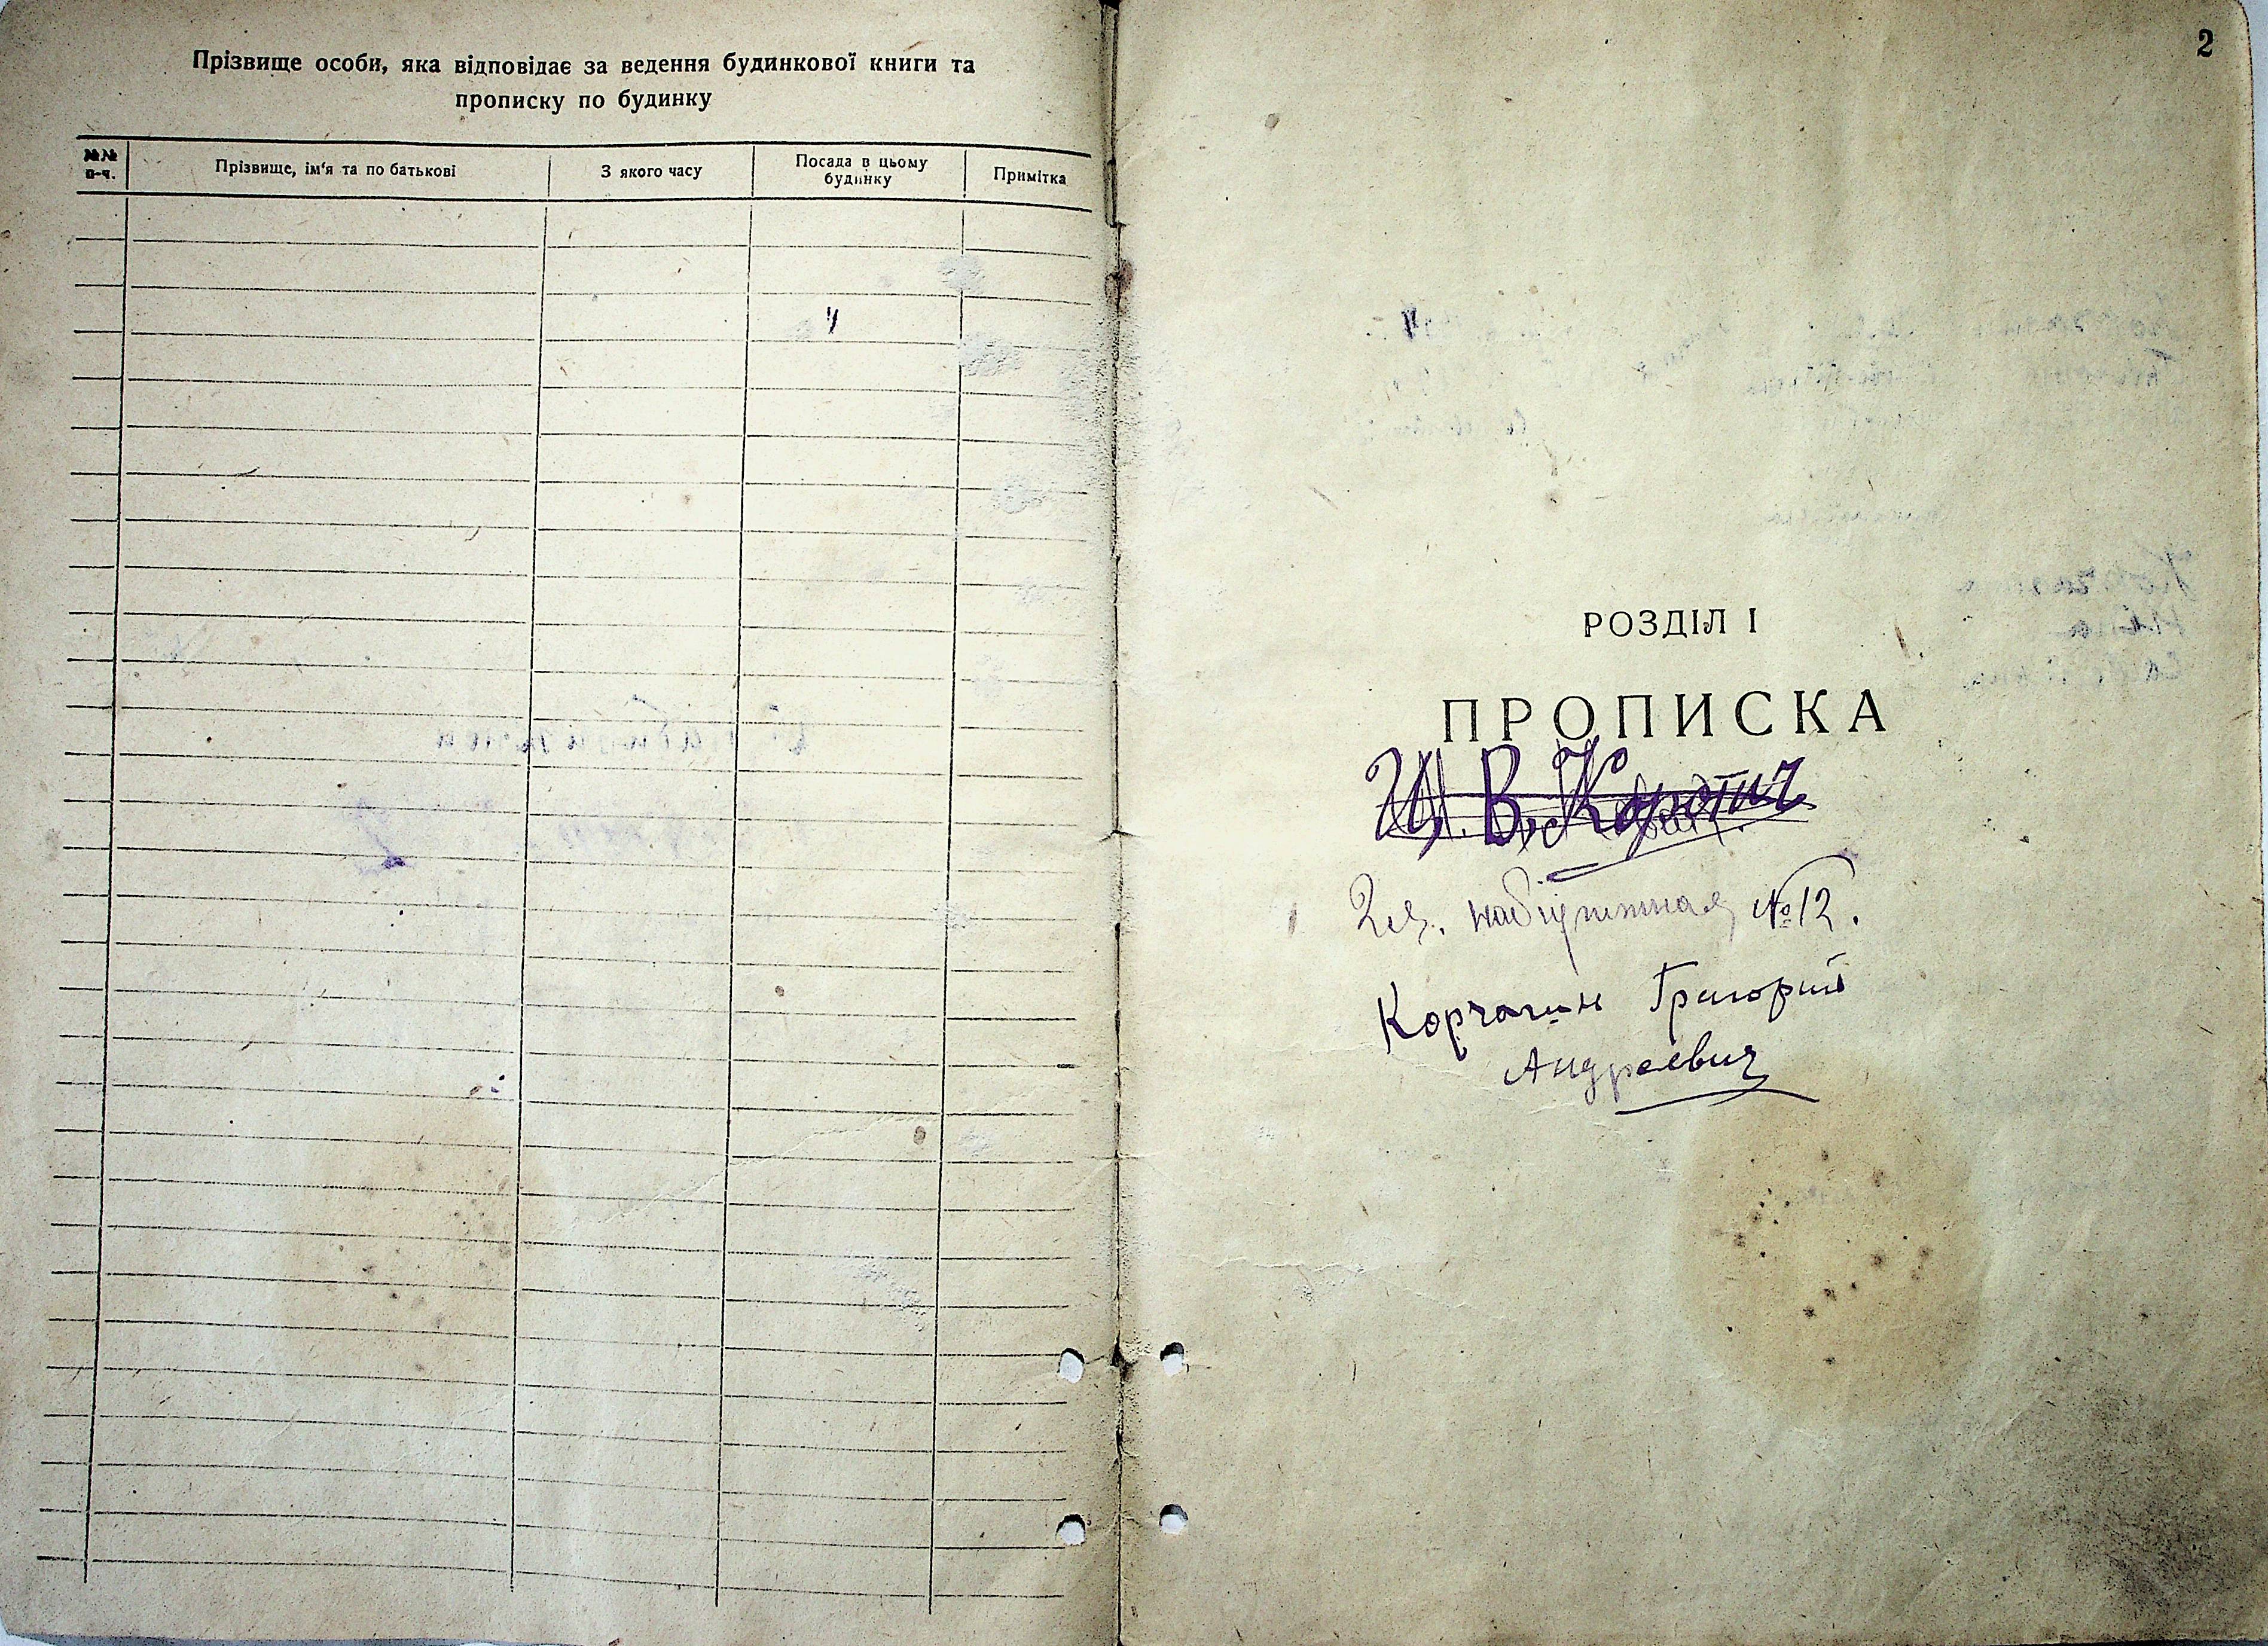 Прізвище особи, яка відповідає за ведення будинкової книги та
прописку по будинку
№№ п-ч.
Прізвище, ім'я та по батькові
З якого часу
Посада в цьому будинку
Примітка
2
РОЗДІЛ І
ПРОПИСКА
И. В. Коротич
№12.
Корчагин Григорий
Андреевич